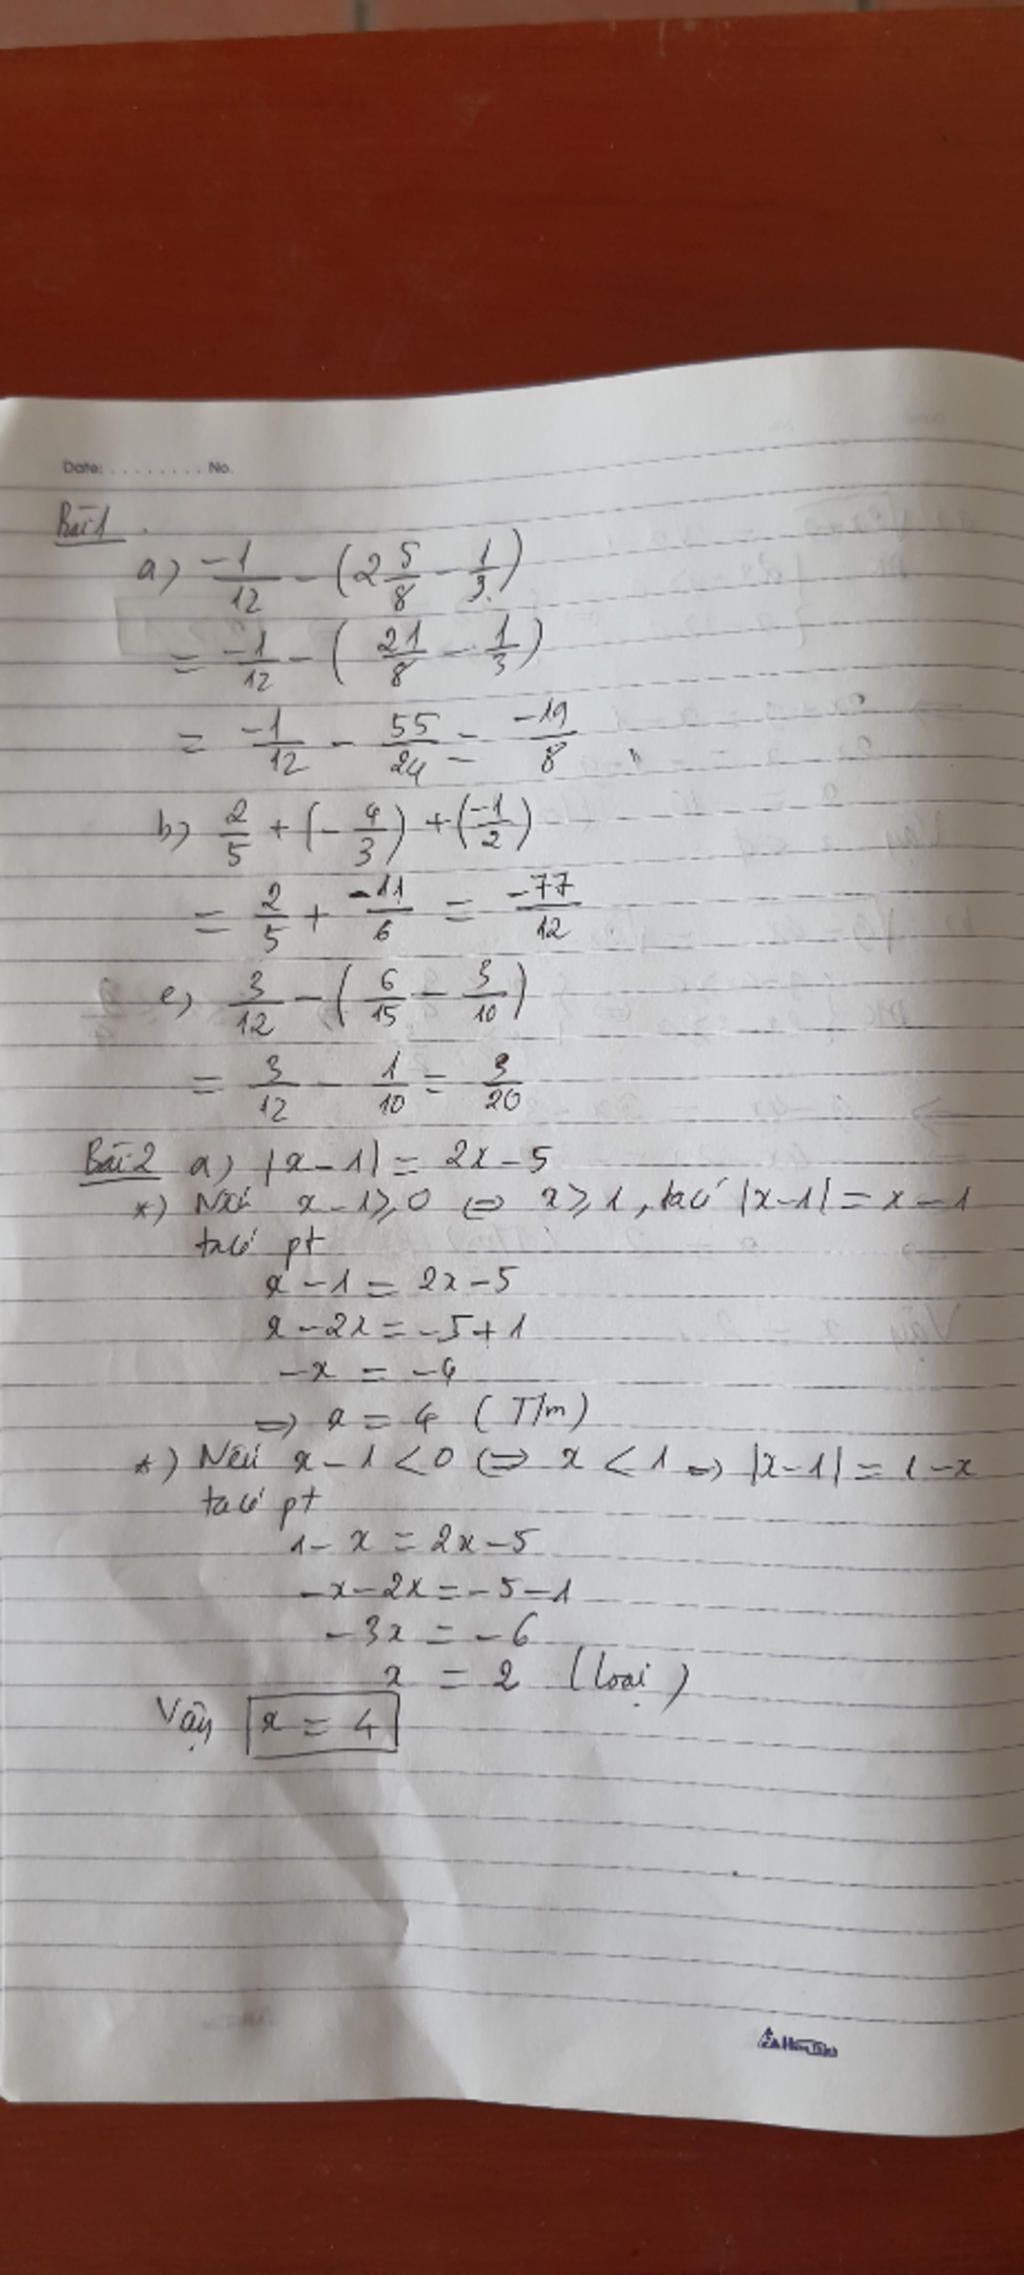 Date: ........ No.
Bài 1
a) -1/12 - (2 5/8 - 1/3)
= -1/12 - (21/8 - 1/3)
= -1/12 - 55/24 = -19/8
b) 2/5 + (-4/3) + (-1/2)
= 2/5 + -11/6 = -77/12
c) 3/12 - (6/15 - 3/10)
= 3/12 - 1/10 = 3/20
Bài 2 a) |x-1| = 2x-5
*) Nếu x-1 ≥ 0 ⇔ x ≥ 1, ta có |x-1| = x-1
ta có pt
x-1 = 2x-5
x-2x = -5+1
-x = -4
=> x = 4 (T/m)
*) Nếu x-1 < 0 ⇔ x < 1 => |x-1| = 1-x
ta có pt
1-x = 2x-5
-x-2x = -5-1
-3x = -6
x = 2 (loại)
Vậy x = 4